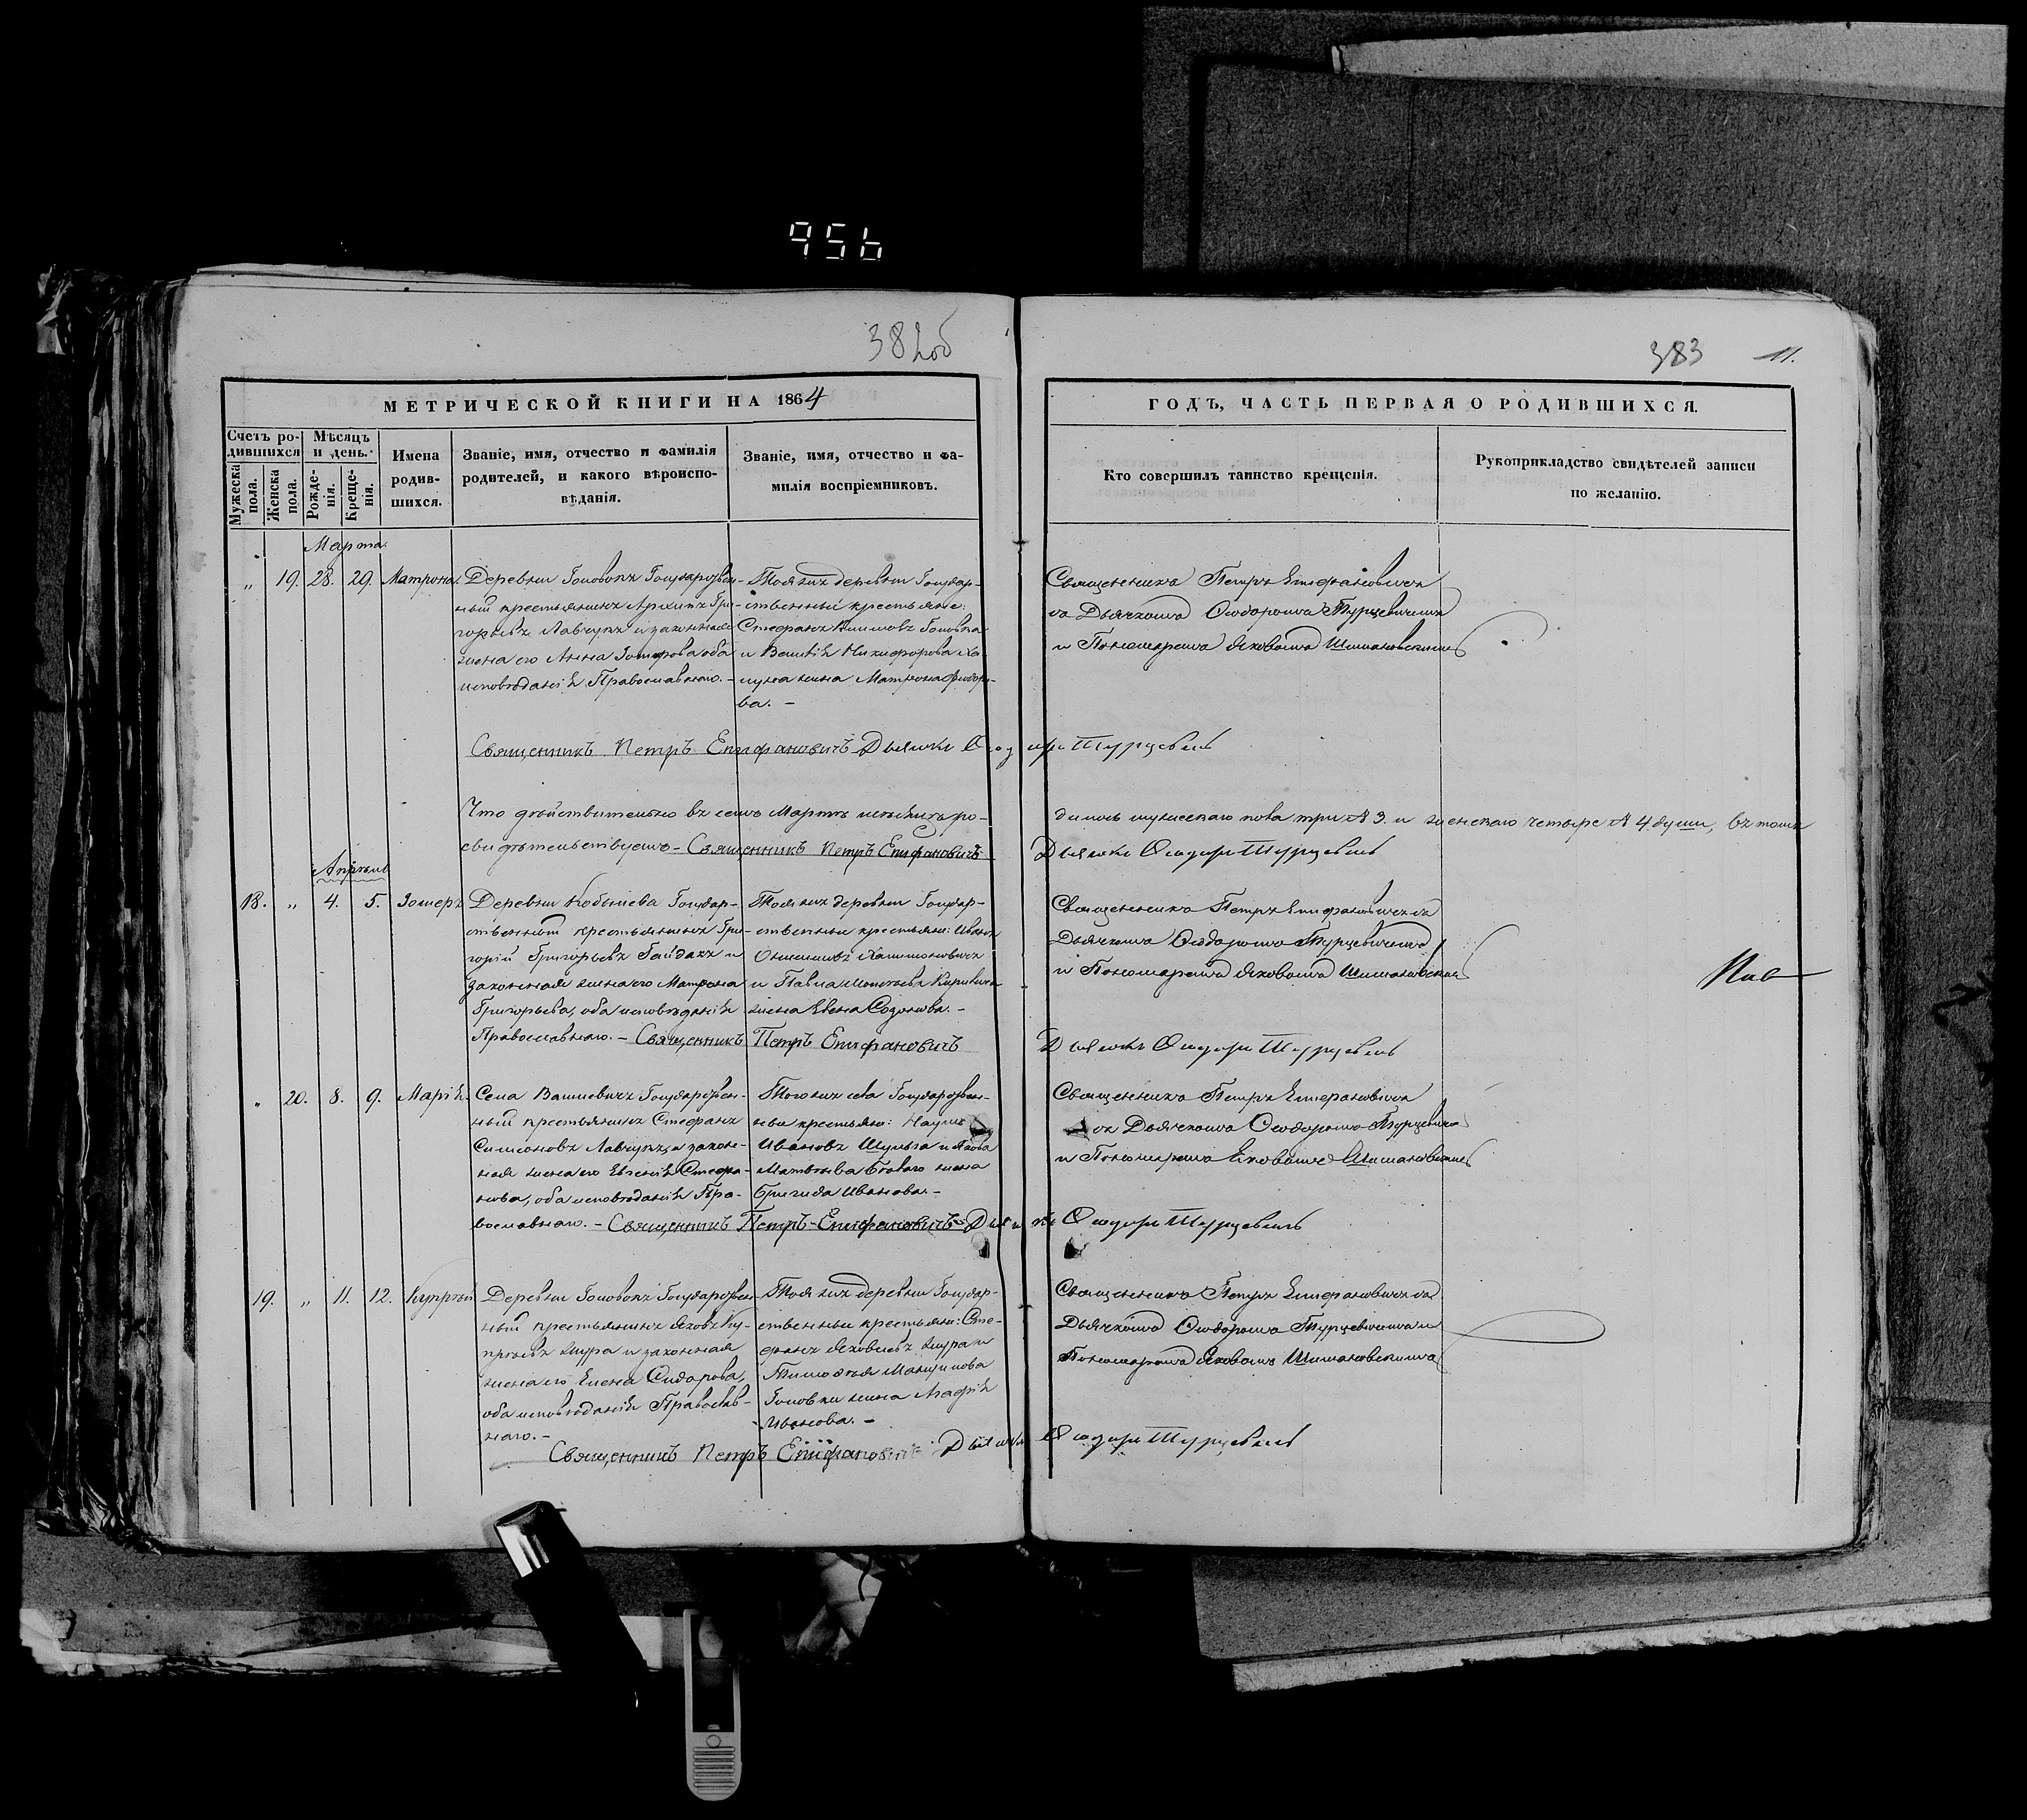 956
382об
383
11.
МЕТРИЧЕСКОЙ КНИГИ НА 1864
ГОДЪ, ЧАСТЬ ПЕРВАЯ О РОДИВШИХСЯ.
Счетъ ро-
дившихся
Мужеска
пола.
Женска
пола.
Мѣсяцъ
и день.
Рожде-
нія.
Креще-
нія.
Имена
родив-
шихся.
Званіе, имя, отчество и фамилія
родителей, и какого вѣроиспо-
вѣданія.
Званіе, имя, отчество и фа-
милія воспріемниковъ.
Кто совершилъ таинство крещенія.
Рукоприкладство свидѣтелей записи
по желанію.
Марта.
„ 19. 28. 29. Матрона.
Деревни Головокъ Государствен-
ный крестьянинъ Архипъ Гри-
горьевъ Лавчукъ и законная
жена его Анна Іосифова оба
исповѣданія Православнаго. -
Тоя жъ деревни Государ-
ственные крестьяне:
Стефанъ Климовъ Головка
и Никифорова
жена Матрона Федоро-
ва. -
Священникъ Петръ Епифановичъ
съ Дьячкомъ Ѳеодоромъ Турцевичемъ
и Пономаремъ Яковомъ Шимановскимъ
Священникъ Петръ Епифановичъ Дьячекъ Ѳеодоръ Турцевичъ
Что дѣйствительно въ семъ Мартѣ мѣсяцѣ ро-
дилось мужескаго пола три № 3. и женскаго четыре № 4 души, въ томъ
свидѣтельствуемъ - Священникъ Петръ Епифановичъ
Дьячекъ Ѳеодоръ Турцевичъ
Апрѣль
18. „ 4. 5.
Деревни Кобылева Государ-
ственный крестьянинъ Гри-
горій Григорьевъ Гайдахъ и
законная жена его Матрона
Григорьева, оба исповѣданія
Православнаго. - Священникъ Петръ Епифановичъ
Тоя жъ деревни Государ-
ственные крестьяне: Иванъ
и Павла
жена Елена
Священникъ Петръ Епифановичъ съ
Дьячкомъ Ѳеодоромъ Турцевичемъ
и Пономаремъ Яковомъ Шимановскимъ
Дьячекъ Ѳеодоръ Турцевичъ
„ 20. 8. 9. Марія.
Села Государствен-
ный крестьянинъ Стефанъ
Симоновъ Лавчукъ, и закон-
ная жена его Евгенія Стефа-
нова, оба исповѣданія Пра-
вославнаго. - Священникъ Петръ Епифановичъ - Дьячекъ Ѳеодоръ Турцевичъ
Того жъ села Государствен-
ные крестьяне: Наумъ
Ивановъ Шульга и Якова
Матвѣева жена
Бригида Иванова. -
Священникъ Петръ Епифановичъ
съ Дьячкомъ Ѳеодоромъ Турцевичемъ
и Пономаремъ Яковомъ Шимановскимъ
19. „ 11. 12. Купрѣй
Деревни Головокъ Государствен-
ный крестьянинъ Яковъ Ку-
прѣевъ и законная
жена его Елена Сидорова,
оба исповѣданія Православ-
наго. -
Тоя жъ деревни Государ-
ственные крестьяне: Сте-
фанъ Яковлевъ и
Тимоѳея
Головки жена Агафія
Иванова. -
Священникъ Петръ Епифановичъ съ
Дьячкомъ Ѳеодоромъ Турцевичемъ и
Пономаремъ Яковомъ Шимановскимъ
Священникъ Петръ Епифановичъ Дьячекъ Ѳеодоръ Турцевичъ